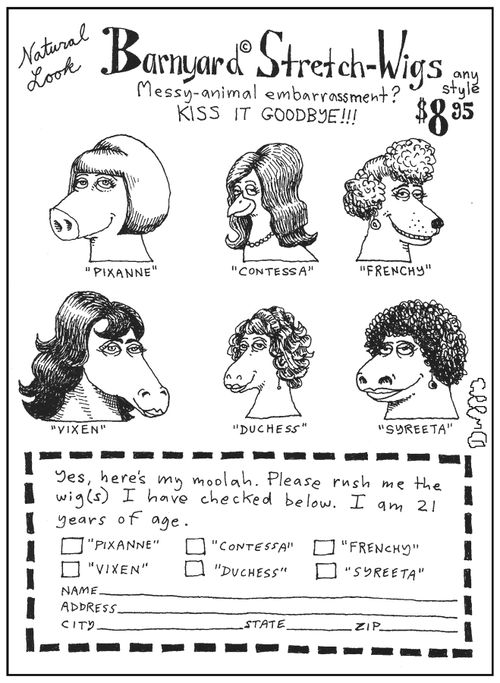 Natural
Look
Barnyard© Stretch-Wigs
any
style
Messy-animal embarrassment?
$8 95
KISS IT GOODBYE!!!
"PIXANNE"
"CONTESSA"
"FRENCHY"
"VIXEN"
"DUCHESS"
"SYREETA"
Yes, here's my moolah. Please rush me the
wig(s) I have checked below. I am 21
years of age.
"PIXANNE" "CONTESSA" "FRENCHY"
"VIXEN" "DUCHESS" "SYREETA"
NAME
ADDRESS
CITY STATE ZIP